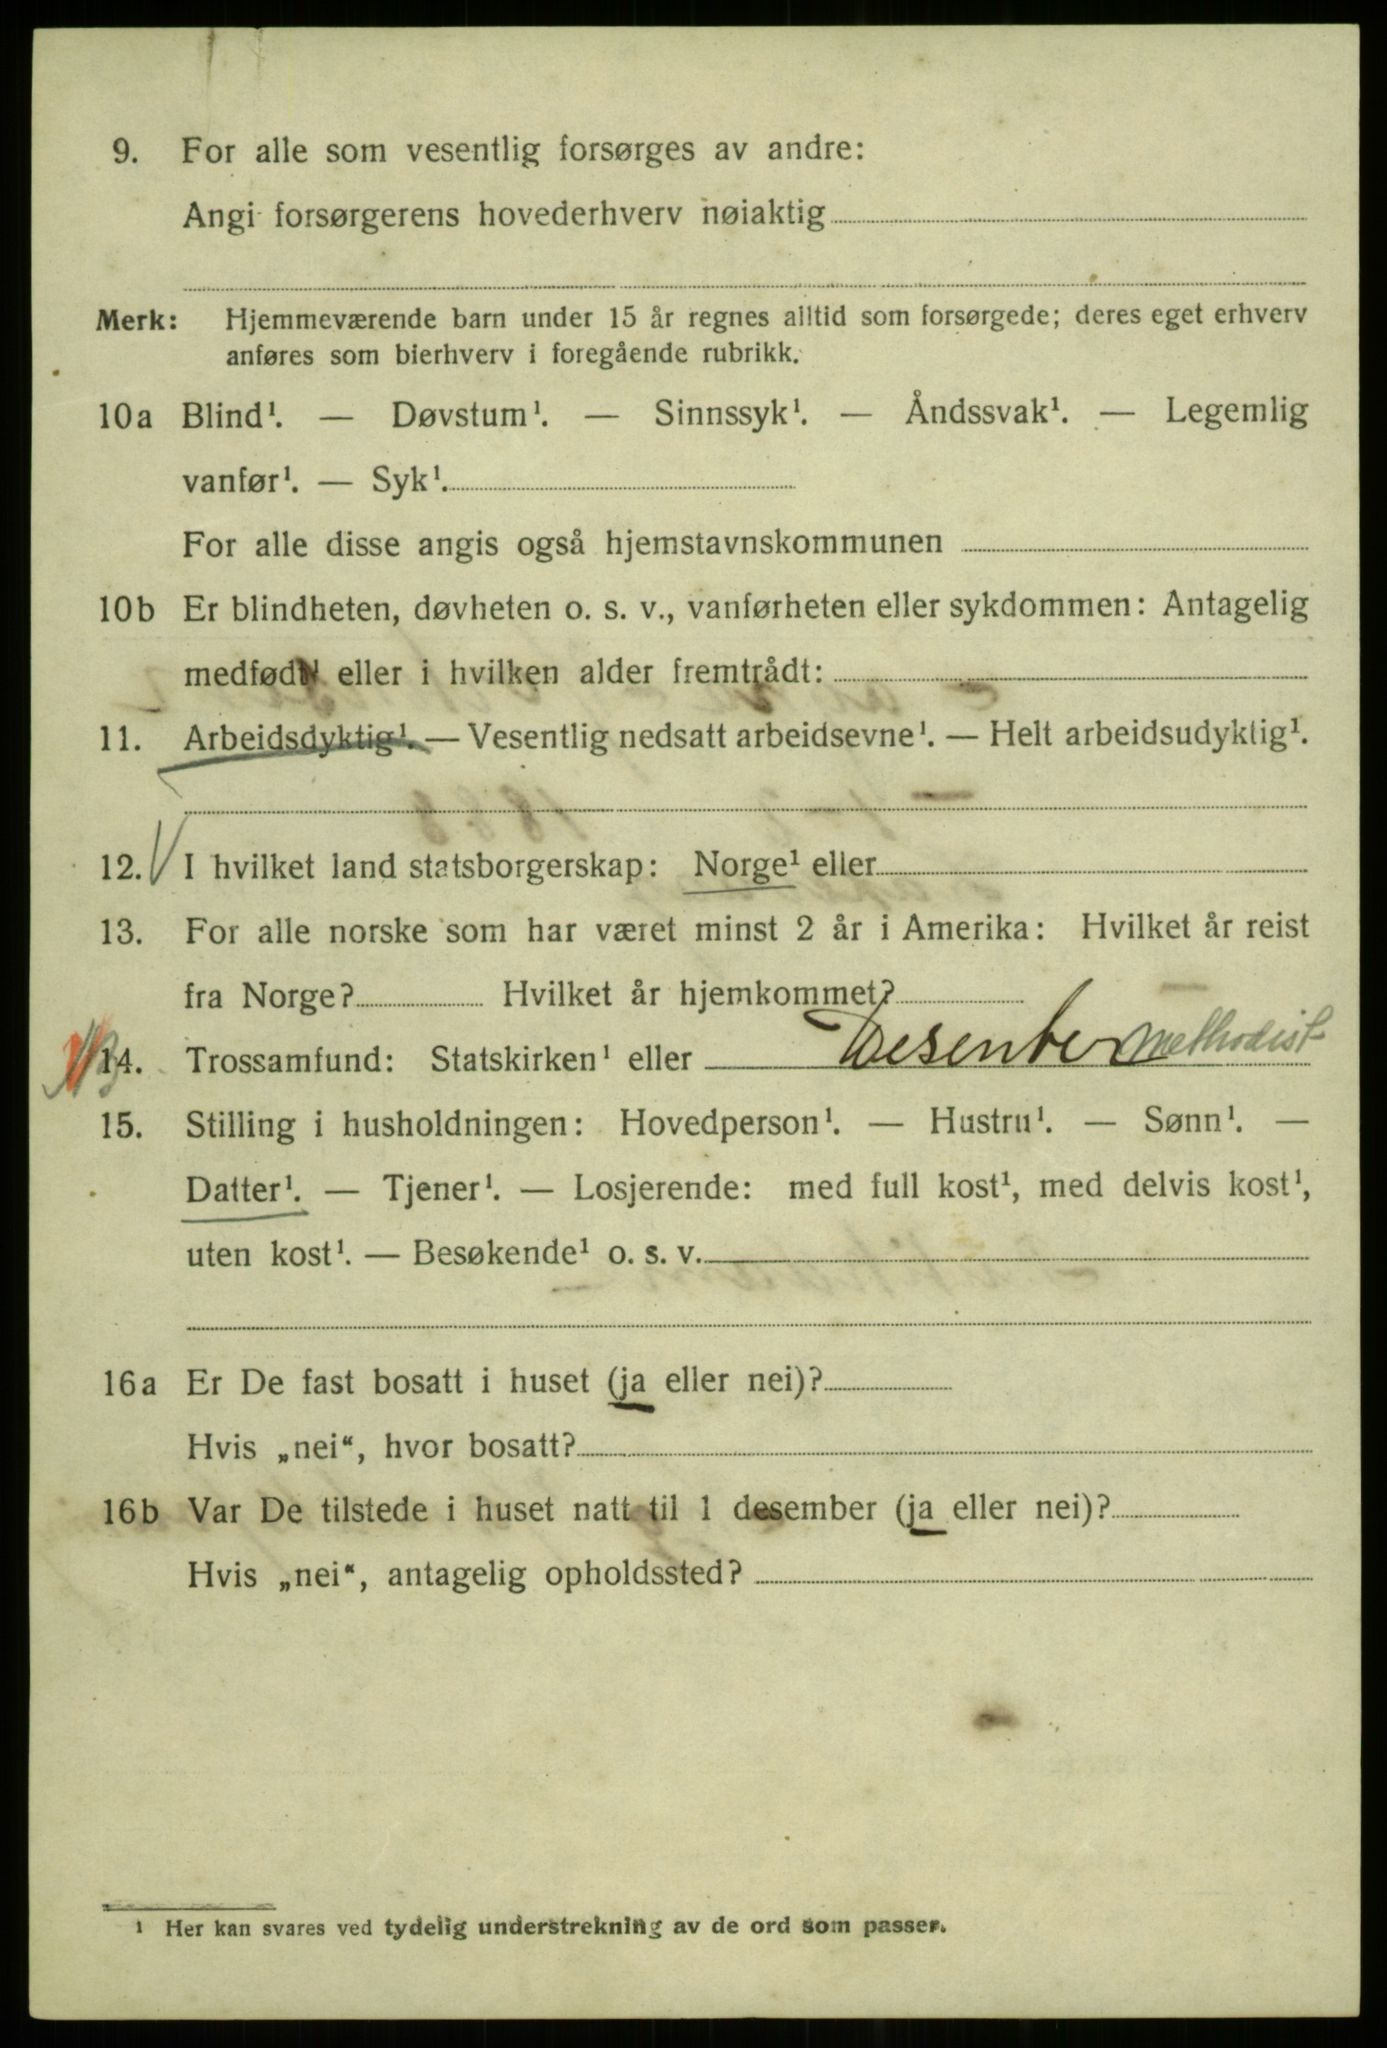 9. For alle som vesentlig forsørges av andre:
Angi forsørgerens hovederhverv nøiaktig
Merk: Hjemmeværende barn under 15 år regnes alltid som forsørgede; deres eget erhverv
anføres som bierhverv i foregående rubrikk.
10a Blind¹. — Døvstum¹. — Sinnssyk¹. — Åndssvak¹. — Legemlig
vanfør¹. — Syk¹.
For alle disse angis også hjemstavnskommunen
10b Er blindheten, døvheten o. s. v., vanførheten eller sykdommen: Antagelig
medfødt eller i hvilken alder fremtrådt:
11. Arbeidsdyktig¹. — Vesentlig nedsatt arbeidsevne¹. — Helt arbeidsudyktig¹.
12. I hvilket land statsborgerskap: Norge¹ eller
13. For alle norske som har været minst 2 år i Amerika: Hvilket år reist
fra Norge? Hvilket år hjemkommet?
14. Trossamfund: Statskirken¹ eller Desenter Methodist
15. Stilling i husholdningen: Hovedperson¹. — Hustru¹. — Sønn¹. —
Datter¹. — Tjener¹. — Losjerende: med full kost¹, med delvis kost¹,
uten kost¹. — Besøkende¹ o. s. v.
16a Er De fast bosatt i huset (ja eller nei)?
Hvis „nei“, hvor bosatt?
16b Var De tilstede i huset natt til 1 desember (ja eller nei)?
Hvis „nei“, antagelig opholdssted?
¹ Her kan svares ved tydelig understrekning av de ord som passer.